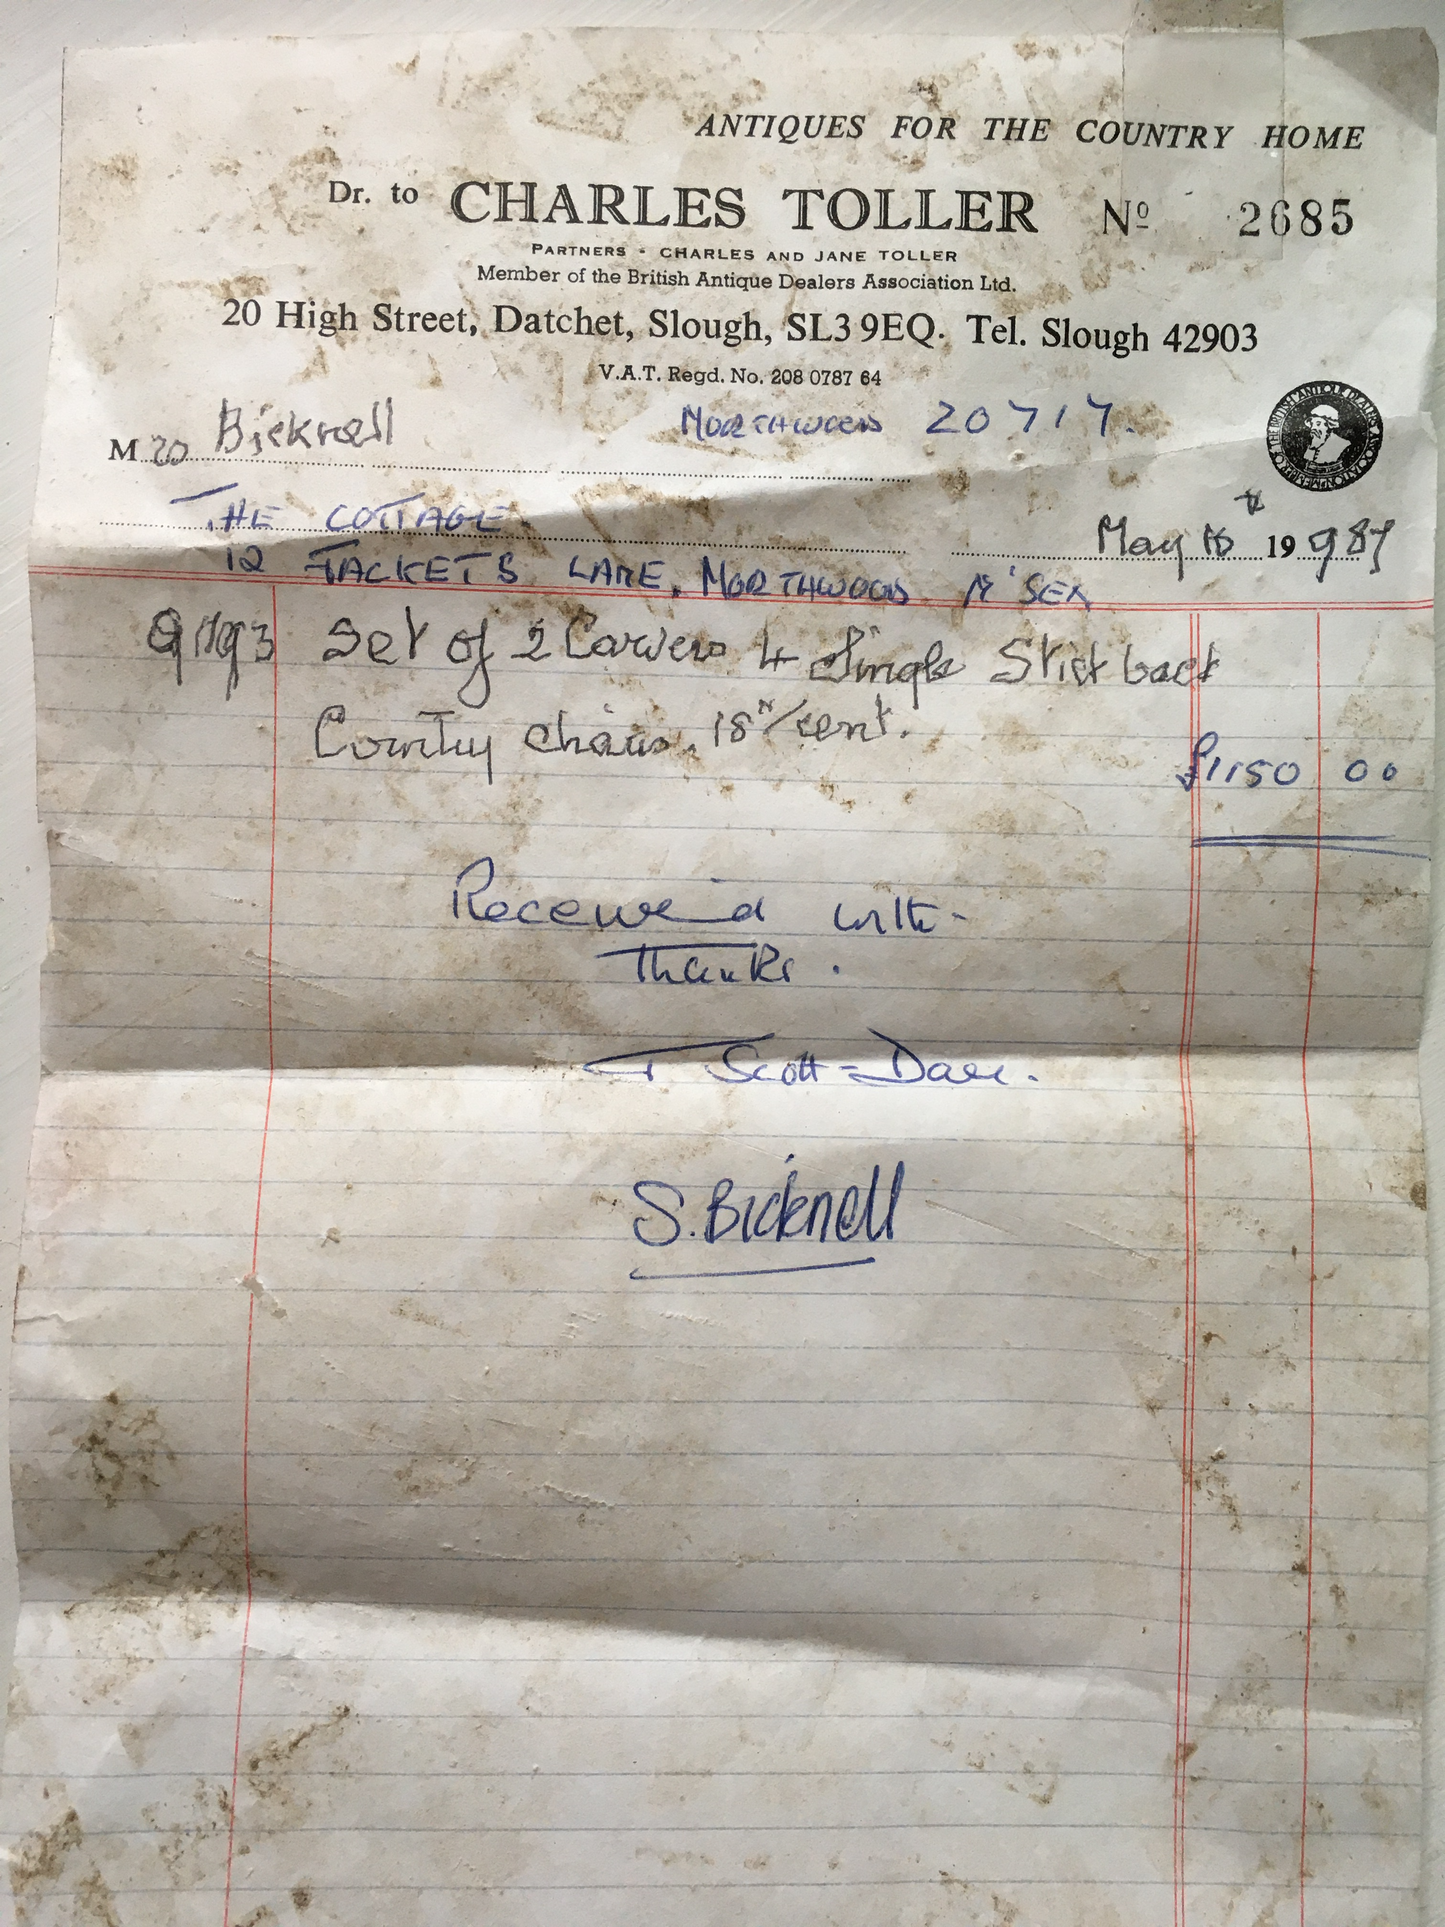 ANTIQUES FOR THE COUNTRY HOME
Dr. to CHARLES TOLLER Nº 2685
PARTNERS - CHARLES AND JANE TOLLER
Member of the British Antique Dealers Association Ltd.
20 High Street, Datchet, Slough, SL3 9EQ. Tel. Slough 42903
V.A.T. Regd. No. 208 0787 64
NORTHWOOD 20717.
M Bicknell
THE COTTAGE
May 19 987
12 JACKETS LANE, NORTHWOOD M'SEX
Set of 2 Carvers 4 Single Stick back
Country chairs. 18th/cent.
£1150 00
Received with
Thanks.
T Scott-
S. Bicknell